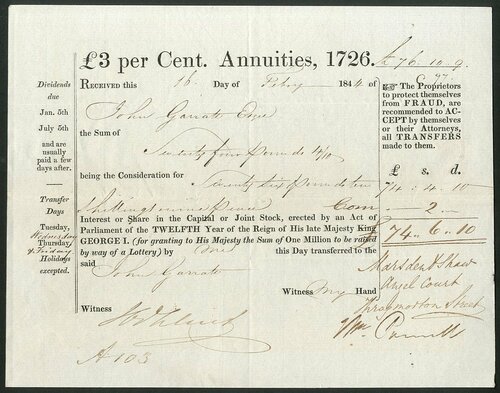 £3 per Cent. Annuities, 1726.
£ 76. 10. 9.
Dividends
due
Jan. 5th
July 5th
and are
usually
paid a few
days after.
Transfer
Days
Tuesday,
Wednesday
Thursday
& Friday
Holidays
excepted.
RECEIVED this 16 Day of Feby 1844 of
John Garratt Esqr
the Sum of
Seventy four Pounds 4/10
being the Consideration for
Seventy Six Pounds ten
Shillings & nine pence
Interest or Share in the Capital or Joint Stock, erected by an Act of
Parliament of the TWELFTH Year of the Reign of His late Majesty King
GEORGE I. (for granting to His Majesty the Sum of One Million to be raised
by way of a Lottery) by this Day transferred to the
said John Garratt
Witness my Hand
Witness
A 103
☞ The Proprietors
to protect themselves
from FRAUD, are
recommended to AC-
CEPT by themselves
or their Attorneys,
all TRANSFERS
made to them.
£ s. d.
74 : 4 : 10
Com 2 -
£ 74. 6. 10
Marsden & Shaw
Angel Court
Throgmorton Street
Wm